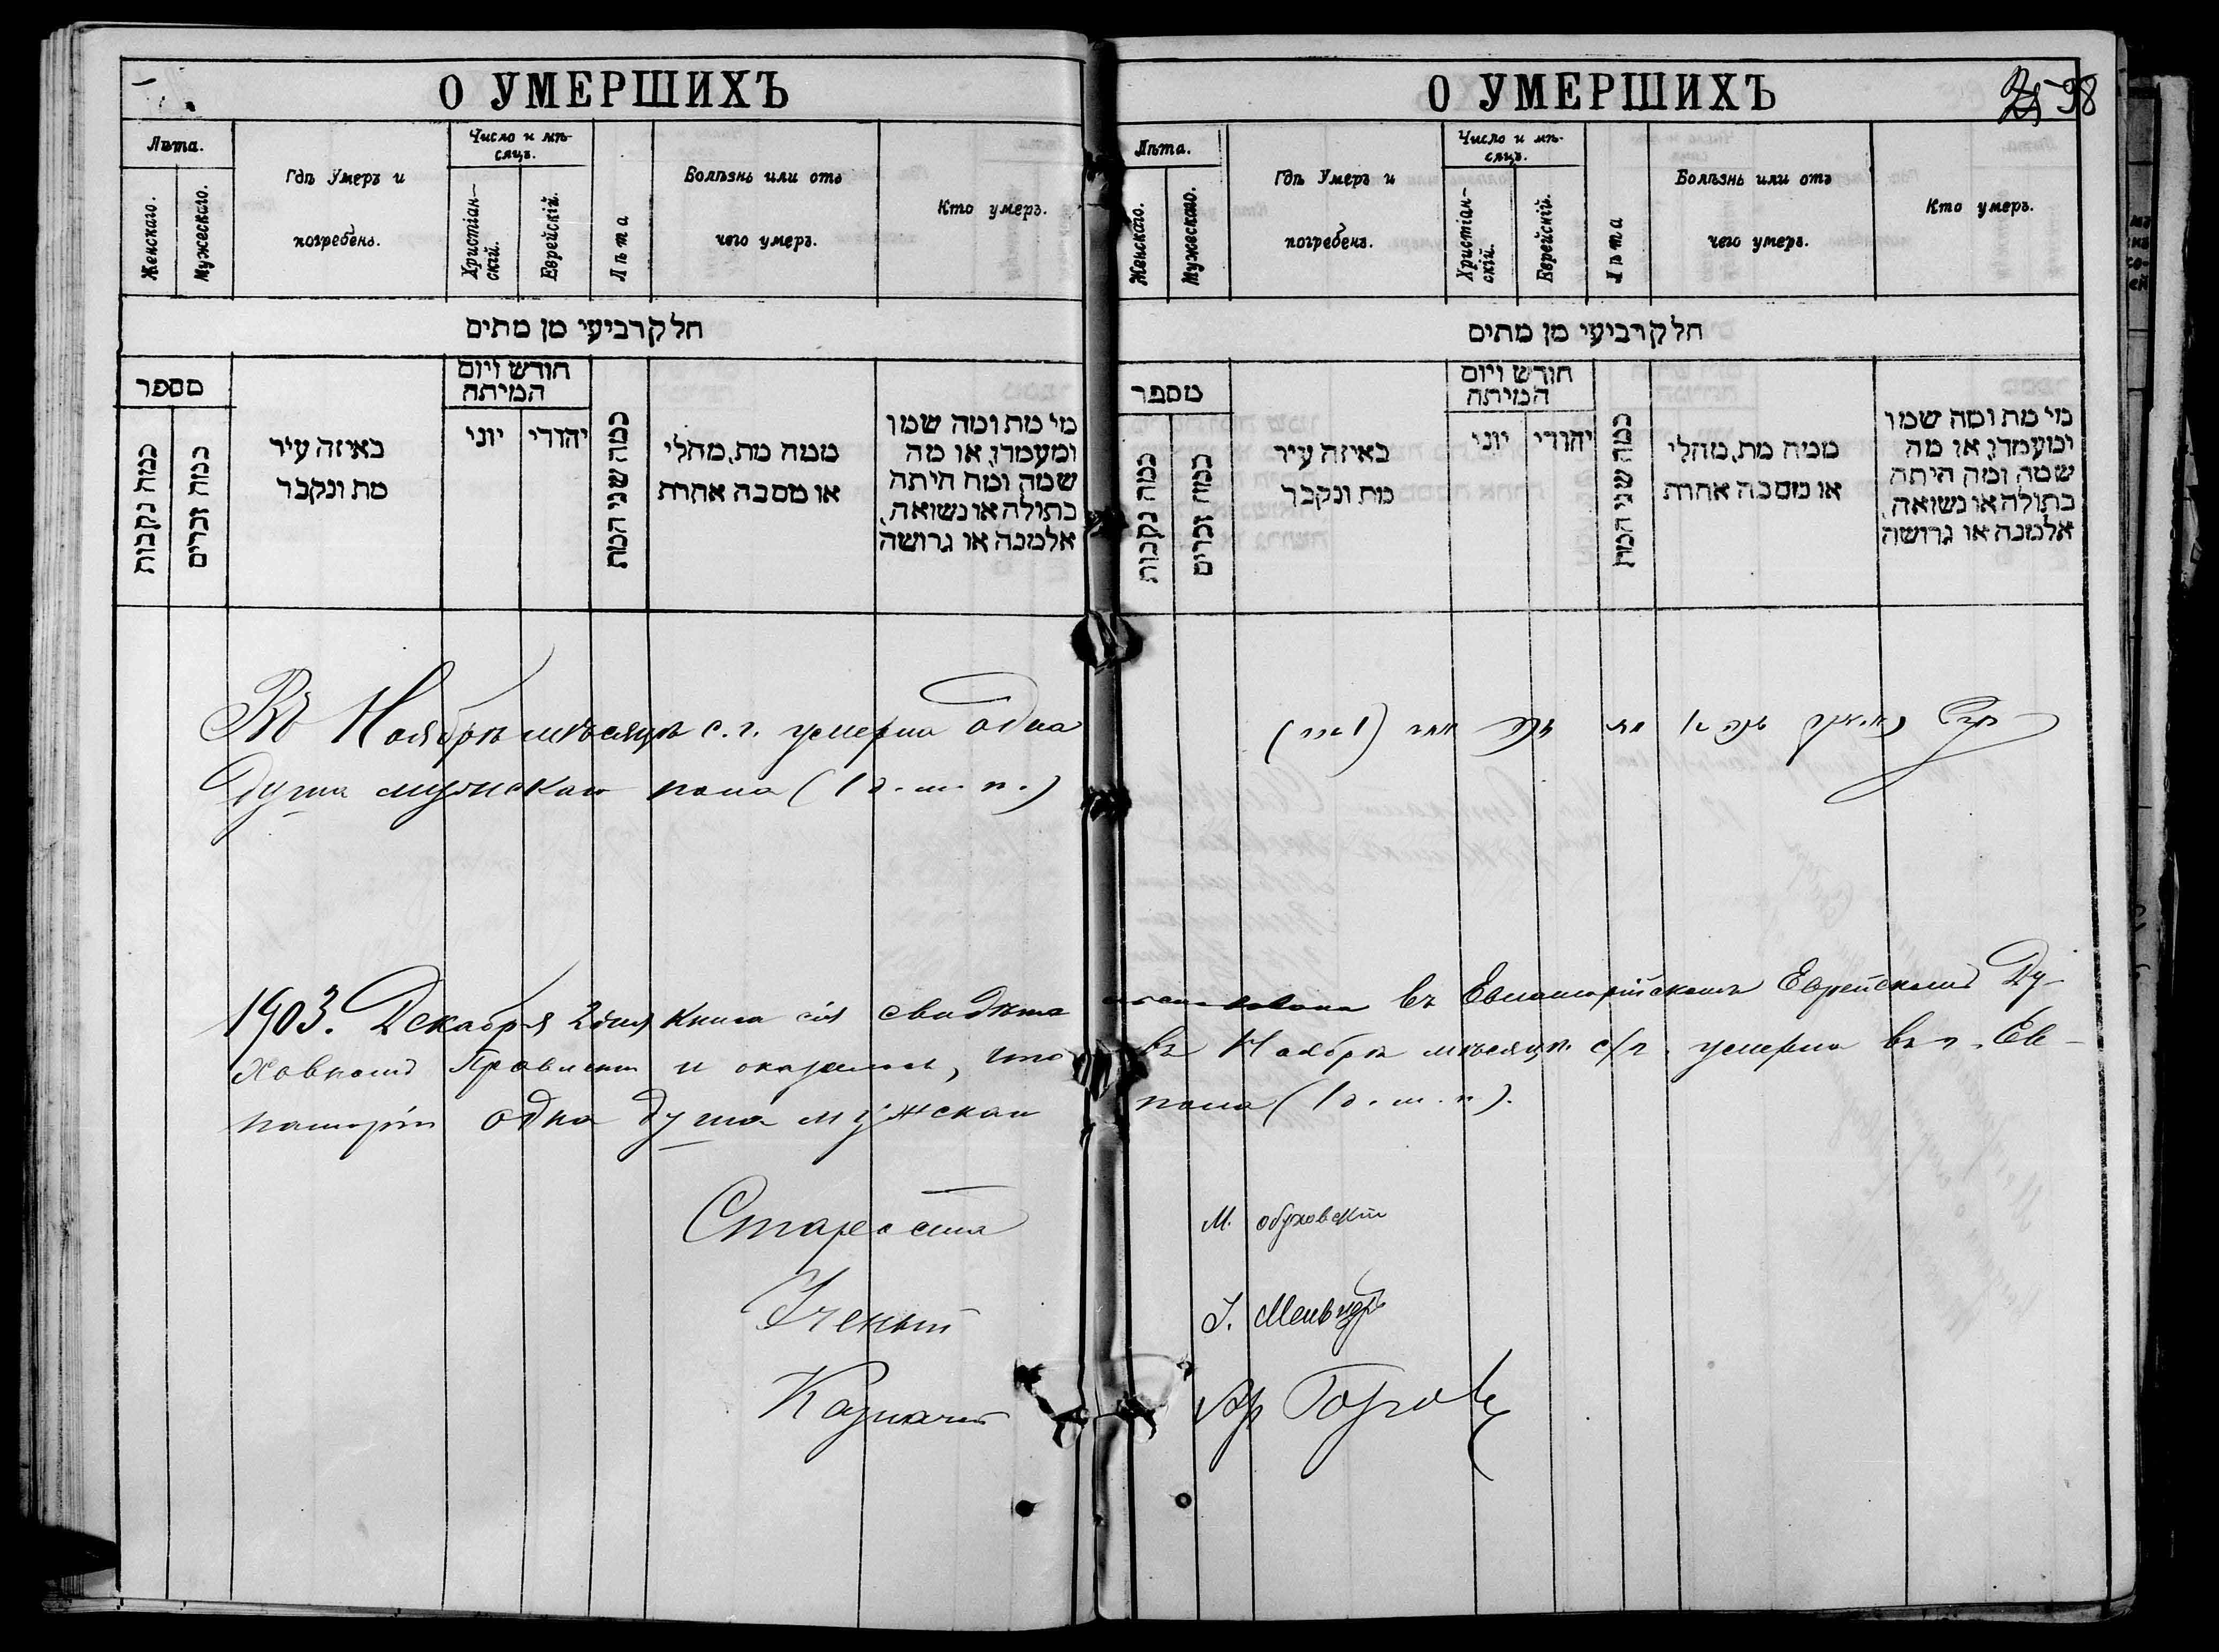 О УМЕРШИХЪ
Лѣта.
Женскаго.
Мужескаго.
Гдѣ Умеръ и
погребенъ.
Число и мѣ-
сяцъ.
Христіан-
скій.
Еврейскій.
Лѣта
Болѣзнь или отъ
чего умеръ.
Кто умеръ.
חלק רביעי מן מתים
מספר
כמה נקבות
כמה זכרים
באיזה עיר
מת ונקבר
חודש ויום
המיתה
יוני
יהודי
כמה שני המת
ממה מת, מחלי
או מסבה אחרת
מי מת ומה שמו
ומעמדו, או מה
שמה ומה היתה
בתולה או נשואה,
אלמנה או גרושה
Въ Ноябрѣ мѣсяцѣ с. г. умерла одна
душа мужскаго пола (1 д. м. п.)
О УМЕРШИХЪ
98
Лѣта.
Женскаго.
Мужескаго.
Гдѣ Умеръ и
погребенъ.
Число и мѣ-
сяцъ.
Христіан-
скій.
Еврейскій.
Лѣта
Болѣзнь или отъ
чего умеръ.
Кто умеръ.
חלק רביעי מן מתים
מספר
כמה נקבות
כמה זכרים
באיזה עיר
מת ונקבר
חודש ויום
המיתה
יוני
יהודי
כמה שני המת
ממה מת, מחלי
או מסבה אחרת
מי מת ומה שמו
ומעמדו, או מה
שמה ומה היתה
בתולה או נשואה,
אלמנה או גרושה
1903. Декабря 2 дня книга сія свидѣтельствована въ Евпаторійскомъ Еврейскомъ Ду-
ховномъ Правленіи и оказалось, что въ Ноябрѣ мѣсяцѣ с/г. умерла въ г. Ев-
паторіи одна душа мужскаго пола (1 д. м. п.).
Староста М. Обуховскій
Ученый І.
Казначей